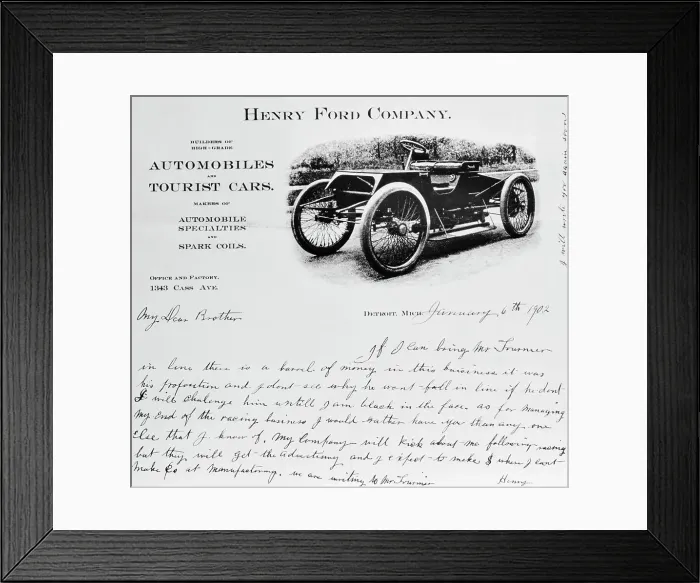 HENRY FORD COMPANY.
BUILDERS OF
HIGH-GRADE
AUTOMOBILES
AND
TOURIST CARS.
MAKERS OF
AUTOMOBILE
SPECIALTIES
AND
SPARK COILS.
OFFICE AND FACTORY,
1343 CASS AVE.
My Dear Brother
DETROIT, MICH. January 6th 1902
If I can bring Mr Fournier
in line there is a barrel of money in this business it was
his proposition and I dont see why he wont fall in line if he dont
I will challenge him untill I am black in the face. as for managing
my end of the racing business I would rather have you than any one
else that I know of. My Company will kick about me following racing
but they will get the Advertising and I expect to make $ where I cant
make ¢s at Manufacturing. we are writing to Mr Fournier
Henry
I will write you again soon